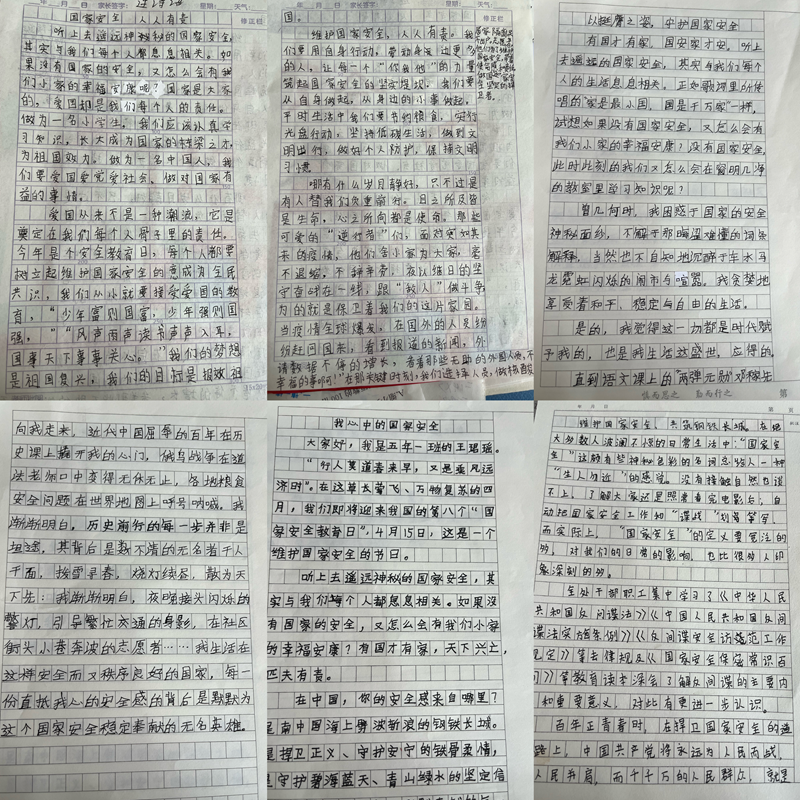 年 月 日 家长签字: 星期: 天气:
国家安全,人人有责
修正栏
听上去遥远神秘的国家安全,
其实与我们每个人息息相关。如
果没有国家的安全,又怎么会有我
们小家的幸福安康呢?国家是大家
的,爱国却是我们每个人的责任。
做为一名小学生,我们应该认真学
习知识,长大成为国家的栋梁之才
为祖国效力,做为一名中国人,我
们要爱国爱党爱社会、做对国家有
益的事情。
爱国从来不是一种潮流,它是
奠定在我们每个人骨子里的责任。
今年是个安全教育日,每个人都要
树立起维护国家安全的意成为全民
共识,我们从小就要接受爱国的教
育,“少年富则国富,少年强则国
强。”“风声雨声读书声声入耳,
国事天下事事关心。”我们的梦想
是祖国复兴,我们的目标是报效祖
年 月 日 家长签字: 星期: 天气:
国。
修正栏
维护国家安全,人人有责。我
们要用自身行动,带动身边更多
的人,让每一个“你我他”的力量
筑起国家安全的坚实堤坝,我们要
从自身做起,从身边的小事做起,
平时生活中我们要节约粮食,实行
光盘行动,坚持低碳生活,做到文
明出行,做好个人防护,保持文明
习惯。
哪有什么岁月静好,只不过是
有人替我们负重前行。目之所及皆
是生命,心之所向都是使命。那些
可爱的“逆行者”们,面对突如其
来的疫情,他们舍小家为大家,毫
不退缩,不辞辛劳,夜以继日的坚
守奋战在一线,跟“敌人”做斗争
为的就是保卫着我们的这片家园。
当疫情全球爆发,在国外的人员纷
纷赶回国来,看到报道的新闻,外
请数据不停的增长,看着那些无助的外国人们,不
幸福的事啊!”在那关键时刻,我们连
以挺膺之姿,守护国家安全
有国才有家,国安家才安,听上
去遥远的国家安全,其实与我们每个
人的生活息息相关。正如歌里所传
唱的“家是最小国,国是千万家”一样,
试想如果没有国家安全,又怎么会有
我们小家的幸福安康?没有国家安全,
此时此刻的我们又怎么会在窗明几净
的教室里学习知识呢?
曾几何时,我困惑于国家的安全
神秘面纱,不解于那晦涩难懂的词条
解释,当然也不自知地沉醉于车水马
龙霓虹闪烁的闹市与喧嚣。我贪婪地
享受着和平、稳定与自由的生活。
是的,我觉得这一切都是时代赋
予我的,也是我生活这盛世,应得的。
直到语文课上的“两弹元勋”邓稼先
慎而思之 勤而行之
第
向我走来,近代中国屈辱的百年在历
史课上翻开我的心门,俄乌战争在道
法老师口中变得无休无止,各地粮食
安全问题在世界地图上呼号呐喊,我
渐渐明白,历史前行的每一步并非是
坦途,其背后是数不清的无名者千人
千面,挨雪早春,烧灯续昼,散为天
下先;我渐渐明白,夜晚接头闪烁的
警灯,引导繁忙交通的身影,在社区
街头小巷奔波的志愿者……我生活在
这样安全而又秩序良好的国家,每一
份直抵我心的安全感的背后是默默为
这个国家安全稳定奉献的无名英雄。
我心中的国家安全
大家好,我是五年一班的王珺瑶。
“行人莫道春来早,又是垂风远
济时”。在这草长莺飞、万物复苏的四
月,我们即将迎来我国的第八个“国
家安全教育日”,4月15日,这是一个
维护国家安全的节日。
听上去遥远神秘的国家安全,其
实与我们每个人都息息相关。如果没
有国家的安全,又怎么会有我们小家
的幸福安康?有国才有家,天下兴亡,
匹夫有责。
在中国,你的安全感来自哪里?
是南中国海上劈波斩浪的钢铁长城。
是捍卫正义、守护安宁的铁骨柔情,
是守护碧海蓝天、青山绿水的坚定信
年 月 日
第 页
维护国家安全,共筑钢铁长城。在绝
大多数人波澜不惊的日常生活中,“国家安
全”这颇有些神秘色彩的名词总给人一种
“生人勿近”的感觉。没有接触自然也谈
不上,了解大家还是照着看完电影后,自
动把国家安全工作和“谍战”划等等号,
而实际上,“国家安全”的定义要宽泛的
多,对我们的日常的影响,也比很多人印
象深刻的多。
全处干部职工集中学习了《中华人民
共和国反间谍法》《中国人民共和国反间
谍法实施条例》《反间谍安全访范工作
规定》等法律规及《国家安全保密常识百
问》等教育读本深会了解反间谍的主要内
和重要意义,对此有更进一步认识。
百年正青春时,在捍卫国家安全的道
路上,中国共产党将永远为人民而战,
人民并肩,而千千万的人民群众,就是